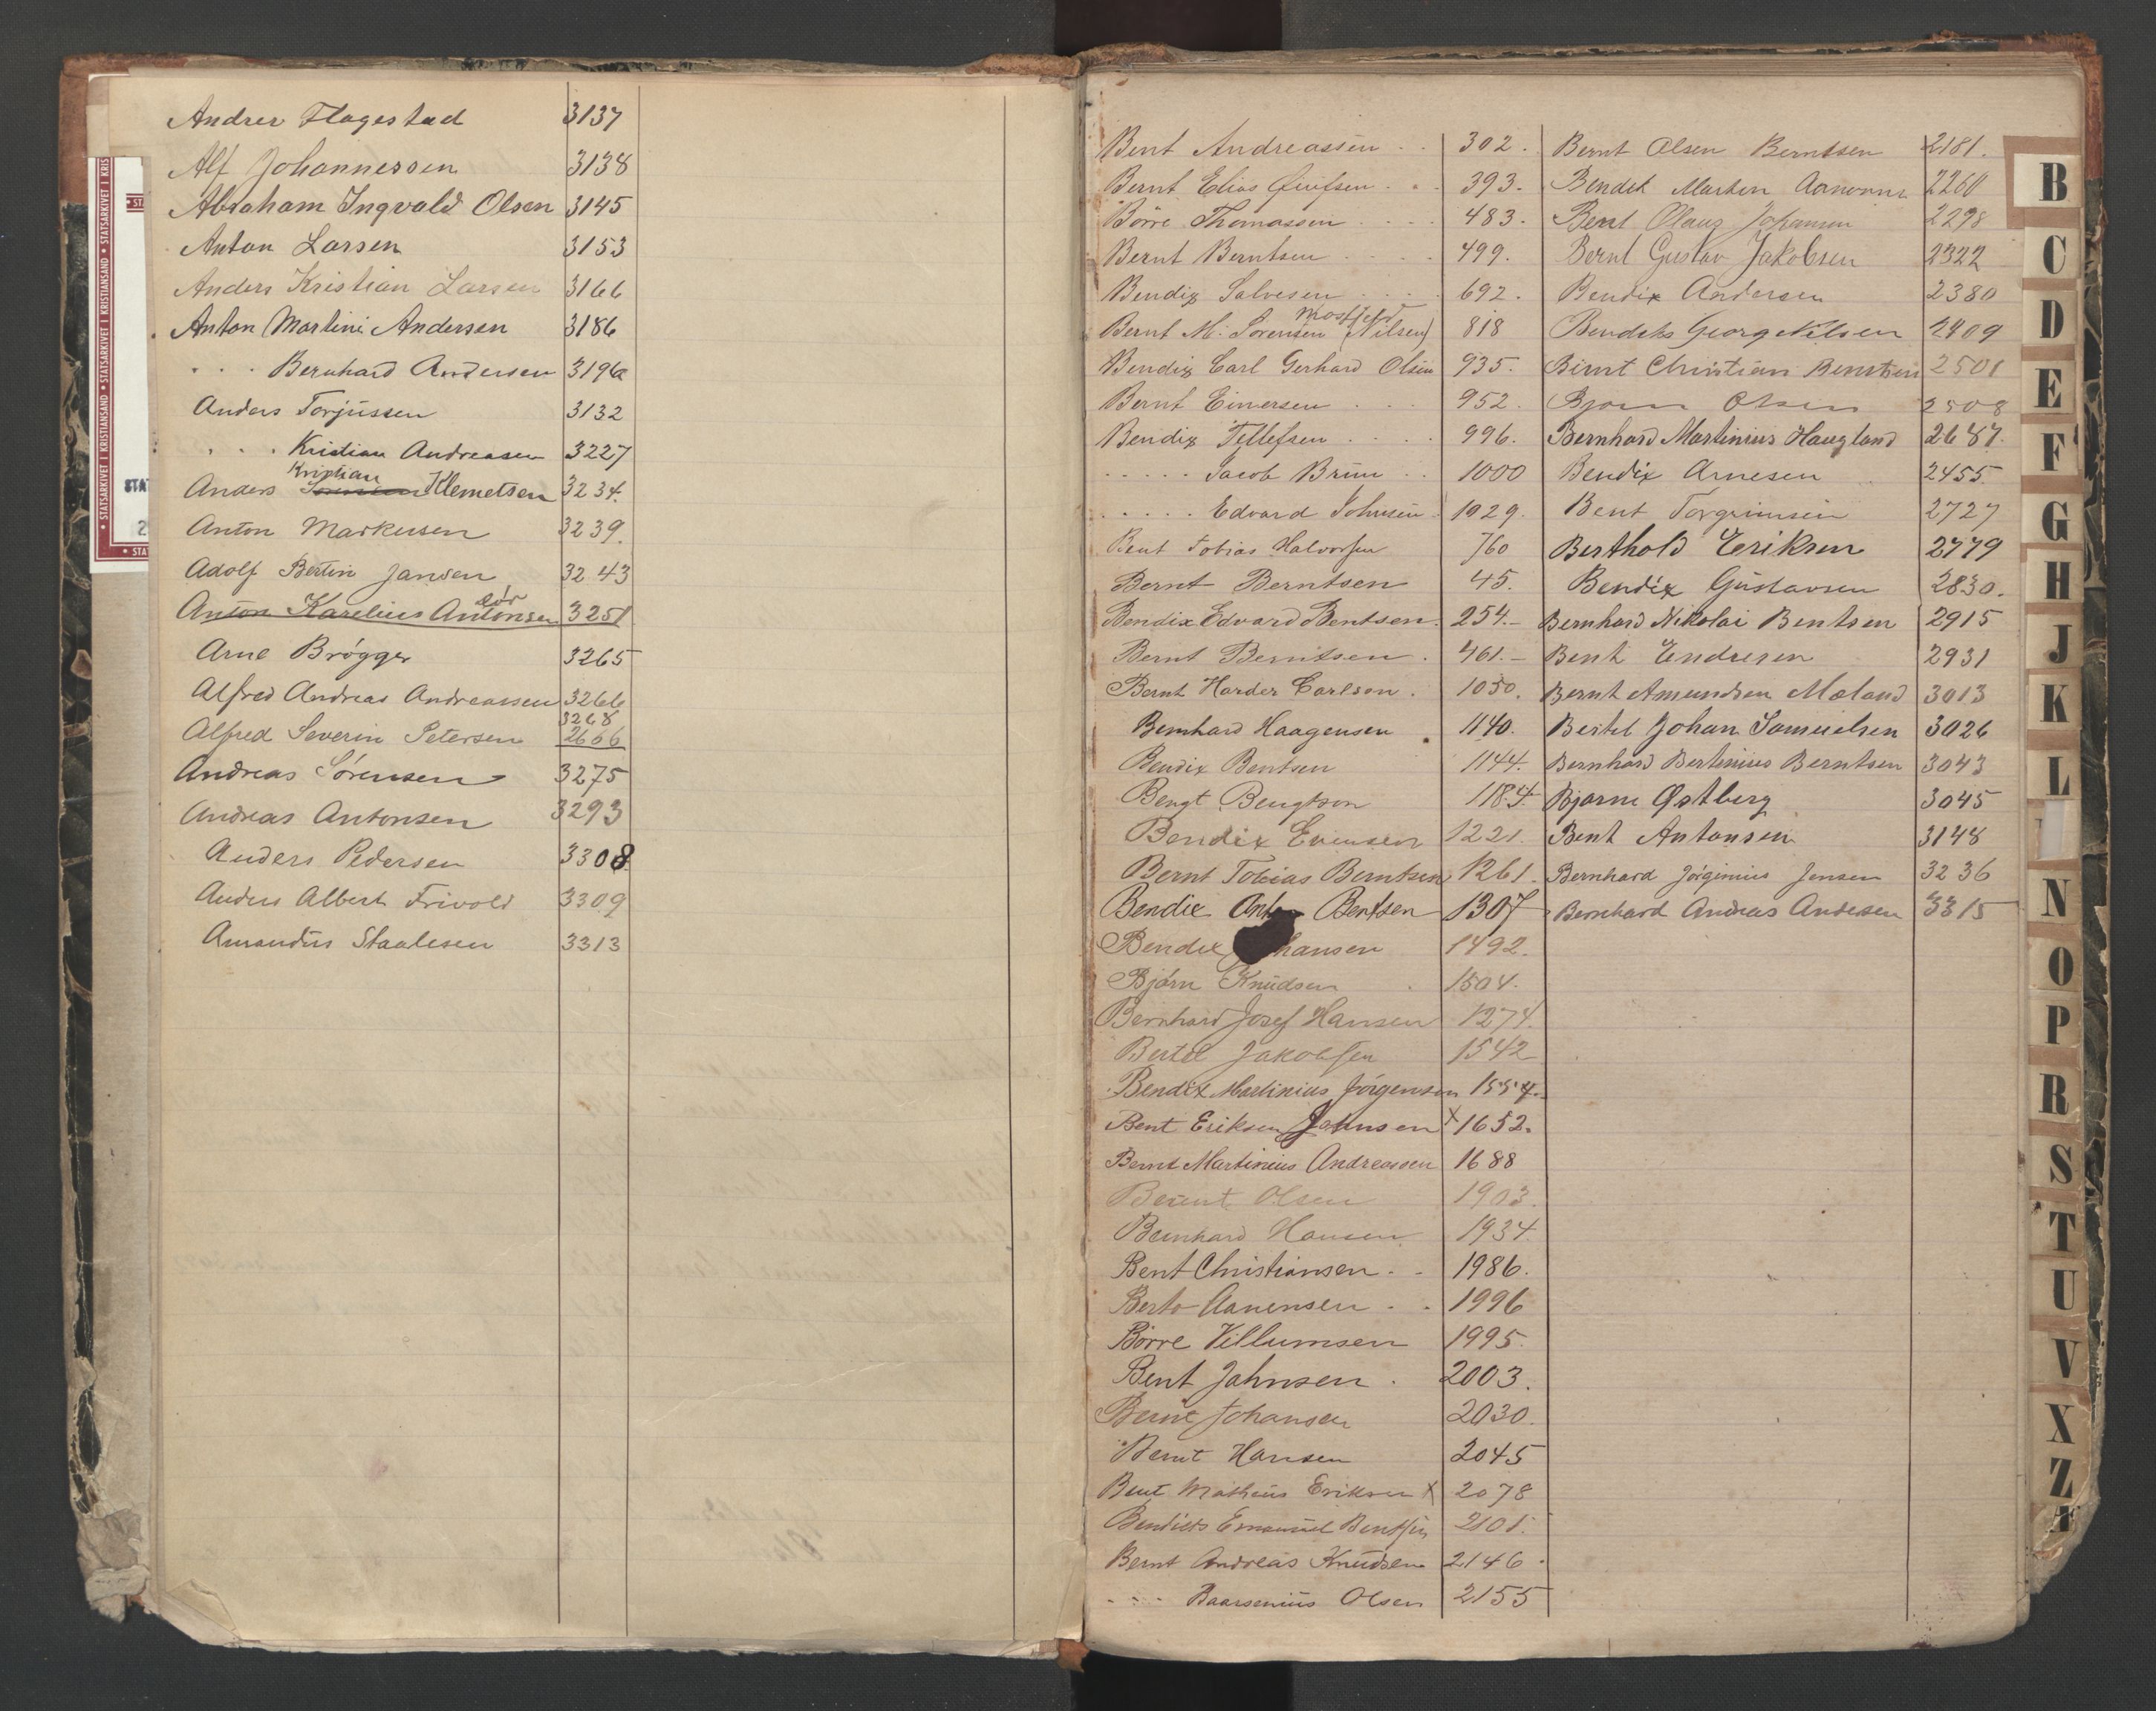 Andrer Flagestad 3137
Alf Johannessen 3138
Abraham Ingvald Olsen 3145
Anton Larsen 3153
Anders Kristian Larsen 3166
Anton Martini Andersen 3186
" Bernhard Andersen 3196
Anders Torjussen 3132
" Kristian Andreasen 3227
Kristian
Anders Sørensen Klemetsen 3234.
Anton Markusen 3239.
Adolf Bertin Jansen 3243
Anton Karelius Antonsen 3251
Arne Brøgger 3265
Alfred Andreas Andreassen 3266
3268
Alfred Severin Petersen 2666
Andreas Sørensen 3275
Andreas Antonsen 3293
Anders Pedersen 3308
Anders Albert Frivold 3309
Amandus Staalesen 3313
Bent Andreassen 302.
Bernt Elias 393.
Börre Thomassen 483.
Bernt Berntsen 499.
Bendix Salvesen 692.
Mosfjeld
Bernt M. Sörensen (Nilsen) 818
Bendix Carl Gerhard Olsen 935.
Bernt Einersen 952.
Bendix Tellefsen 996.
" Jacob Brün 1000
" Edvard Johnsen 1029.
Bent Tobias Halvorsen 760
Bernt Berntsen 45.
Bendix Edvard Bentsen. 254.
Bernt Berntsen 461.
Bernt Harder Carlson. 1050.
Bernhard Haagensen 1140.
Bendix Bentsen 1144.
Bengt Bengtson 1184
Bendix Evensen 1221.
Bernt Tobias Berntsen 1261.
Bendix Anton Bentsen 1307
Bendix hansen 1492.
Bjørn Knudsen 1504.
Bernhard Josef Hansen 1274.
Bertel Jakobsen 1542
Bendix Martinius Jörgensen 1554.
Bent Eriksen Jahnsen x 1652.
Bernt Martinius Andreassen 1688
Berent Olsen 1903.
Bernhard Hansen 1934.
Bent Christiansen 1986.
Berto Aanensen 1996
Börre Villumsen 1995.
Bent Jahnsen 2003.
Bernt Johansen 2030.
Bernt Hansen 2045
Bent Mathias Eriksen x 2078
Bendiks Emanuel Bentsen 2101.
Bernt Andreas Knudsen 2146
" Baarsenius Olsen 2155
Bernt Olsen Berntsen 2181.
Bendik Martin 2260
Bent Olaus Johansen 2298
Bernt Gustav Jakobsen 2322
Bendix Andersen 2380
Bendiks Georg Nilsen 2409
Bernt Christian Berntsen 2501
Bjørn Olsen 2508
Bernhard Martinius Haugland 2687.
Bendix Arnesen 2455
Bent Torgrimsen 2727
Berthold Eriksen 2779
Bendix Gustavsen 2830.
Bernhard Nikolai Bentsen 2915
Bent Endresen 2931
Bernt Amundsen Mæland 3013
Bertel Johan Samuelsen 3026
Bernhard Bertinius Berntsen 3043
Bjarne Østberg 3045
Bent Antonsen 3148
Bernhard Jørginius Jensen 3236
Bernhard Andreas Andersen 3315
B
C
D
E
F
G
H
J
K
L
N
O
P
R
S
T
U
V
X
Z
Æ
STATSARKIVET I KRISTIANSAND • STATSARKIVET I KRISTIANSAND • STATSARKIVET I KRIS